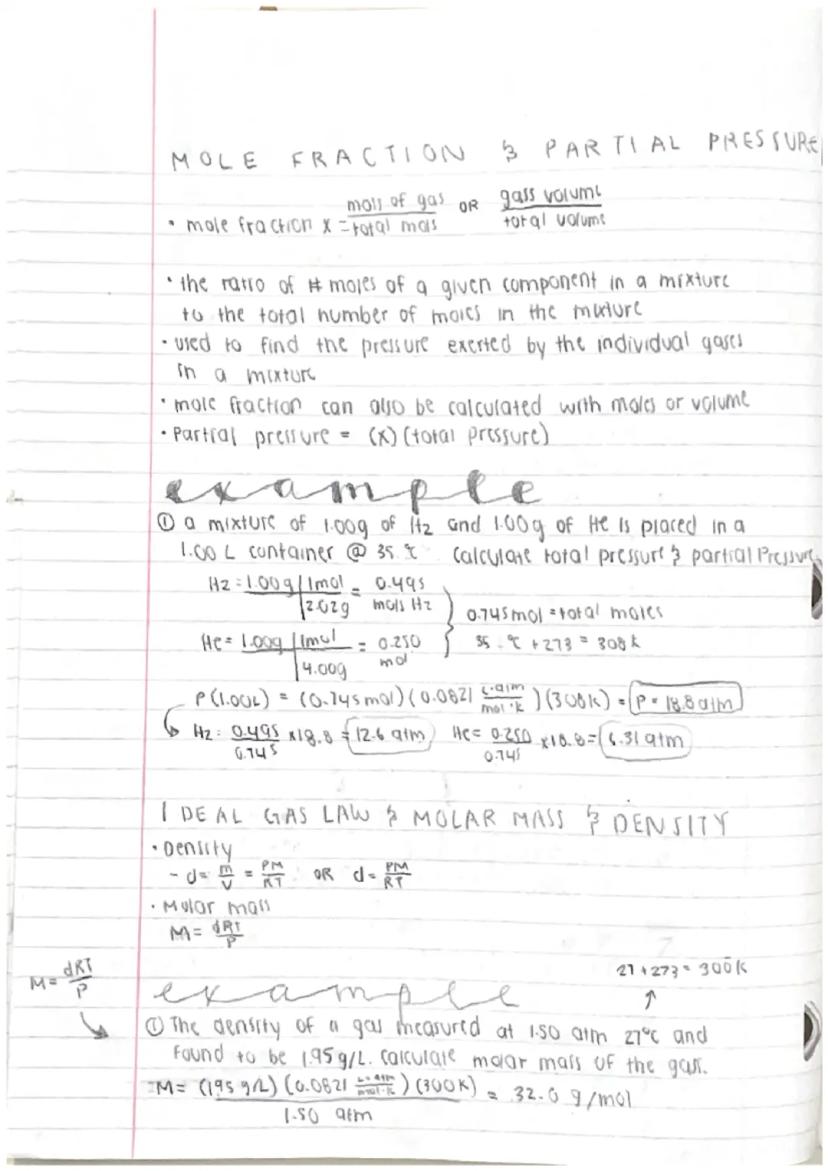 MOLE FRACTION & PARTIAL PRESSURE
• mole fraction X = mols of gas / total mols OR gass volume / total volume
• the ratio of # moles of a given component in a mixture
to the total number of moles in the mixture
• used to find the pressure exerted by the individual gases
in a mixture
• mole fraction can also be calculated with moles or volume
• Partial pressure = (X)(total pressure)
example
① a mixture of 1.00g of H2 and 1.00g of He is placed in a
1.00 L container @ 35 °C calculate total pressure & partial Pressure
H2 = 1.00g | 1mol / 2.02g = 0.495 mols H2
0.745mol = total moles
He = 1.00g | 1mol / 4.00g = 0.250 mol
35 °C + 273 = 308 K
P(1.00L) = (0.745mol)(0.0821 L·atm / mol·K)(308K) = P = 18.8 atm
H2: 0.495 / 0.745 x 18.8 = 12.6 atm He = 0.250 / 0.745 x 18.8 = 6.31 atm
IDEAL GAS LAW & MOLAR MASS & DENSITY
• Density
- d = m/V = PM/RT OR d = PM/RT
• Molar mass
M = dRT/P
27 + 273 = 300K
M = dRT/P
example
① The density of a gas measured at 1.50 atm 27°C and
found to be 1.95 g/L. calculate molar mass of the gas.
M = (1.95 g/L)(0.0821 L·atm / mol·K)(300K) / 1.50 atm = 32.0 g/mol